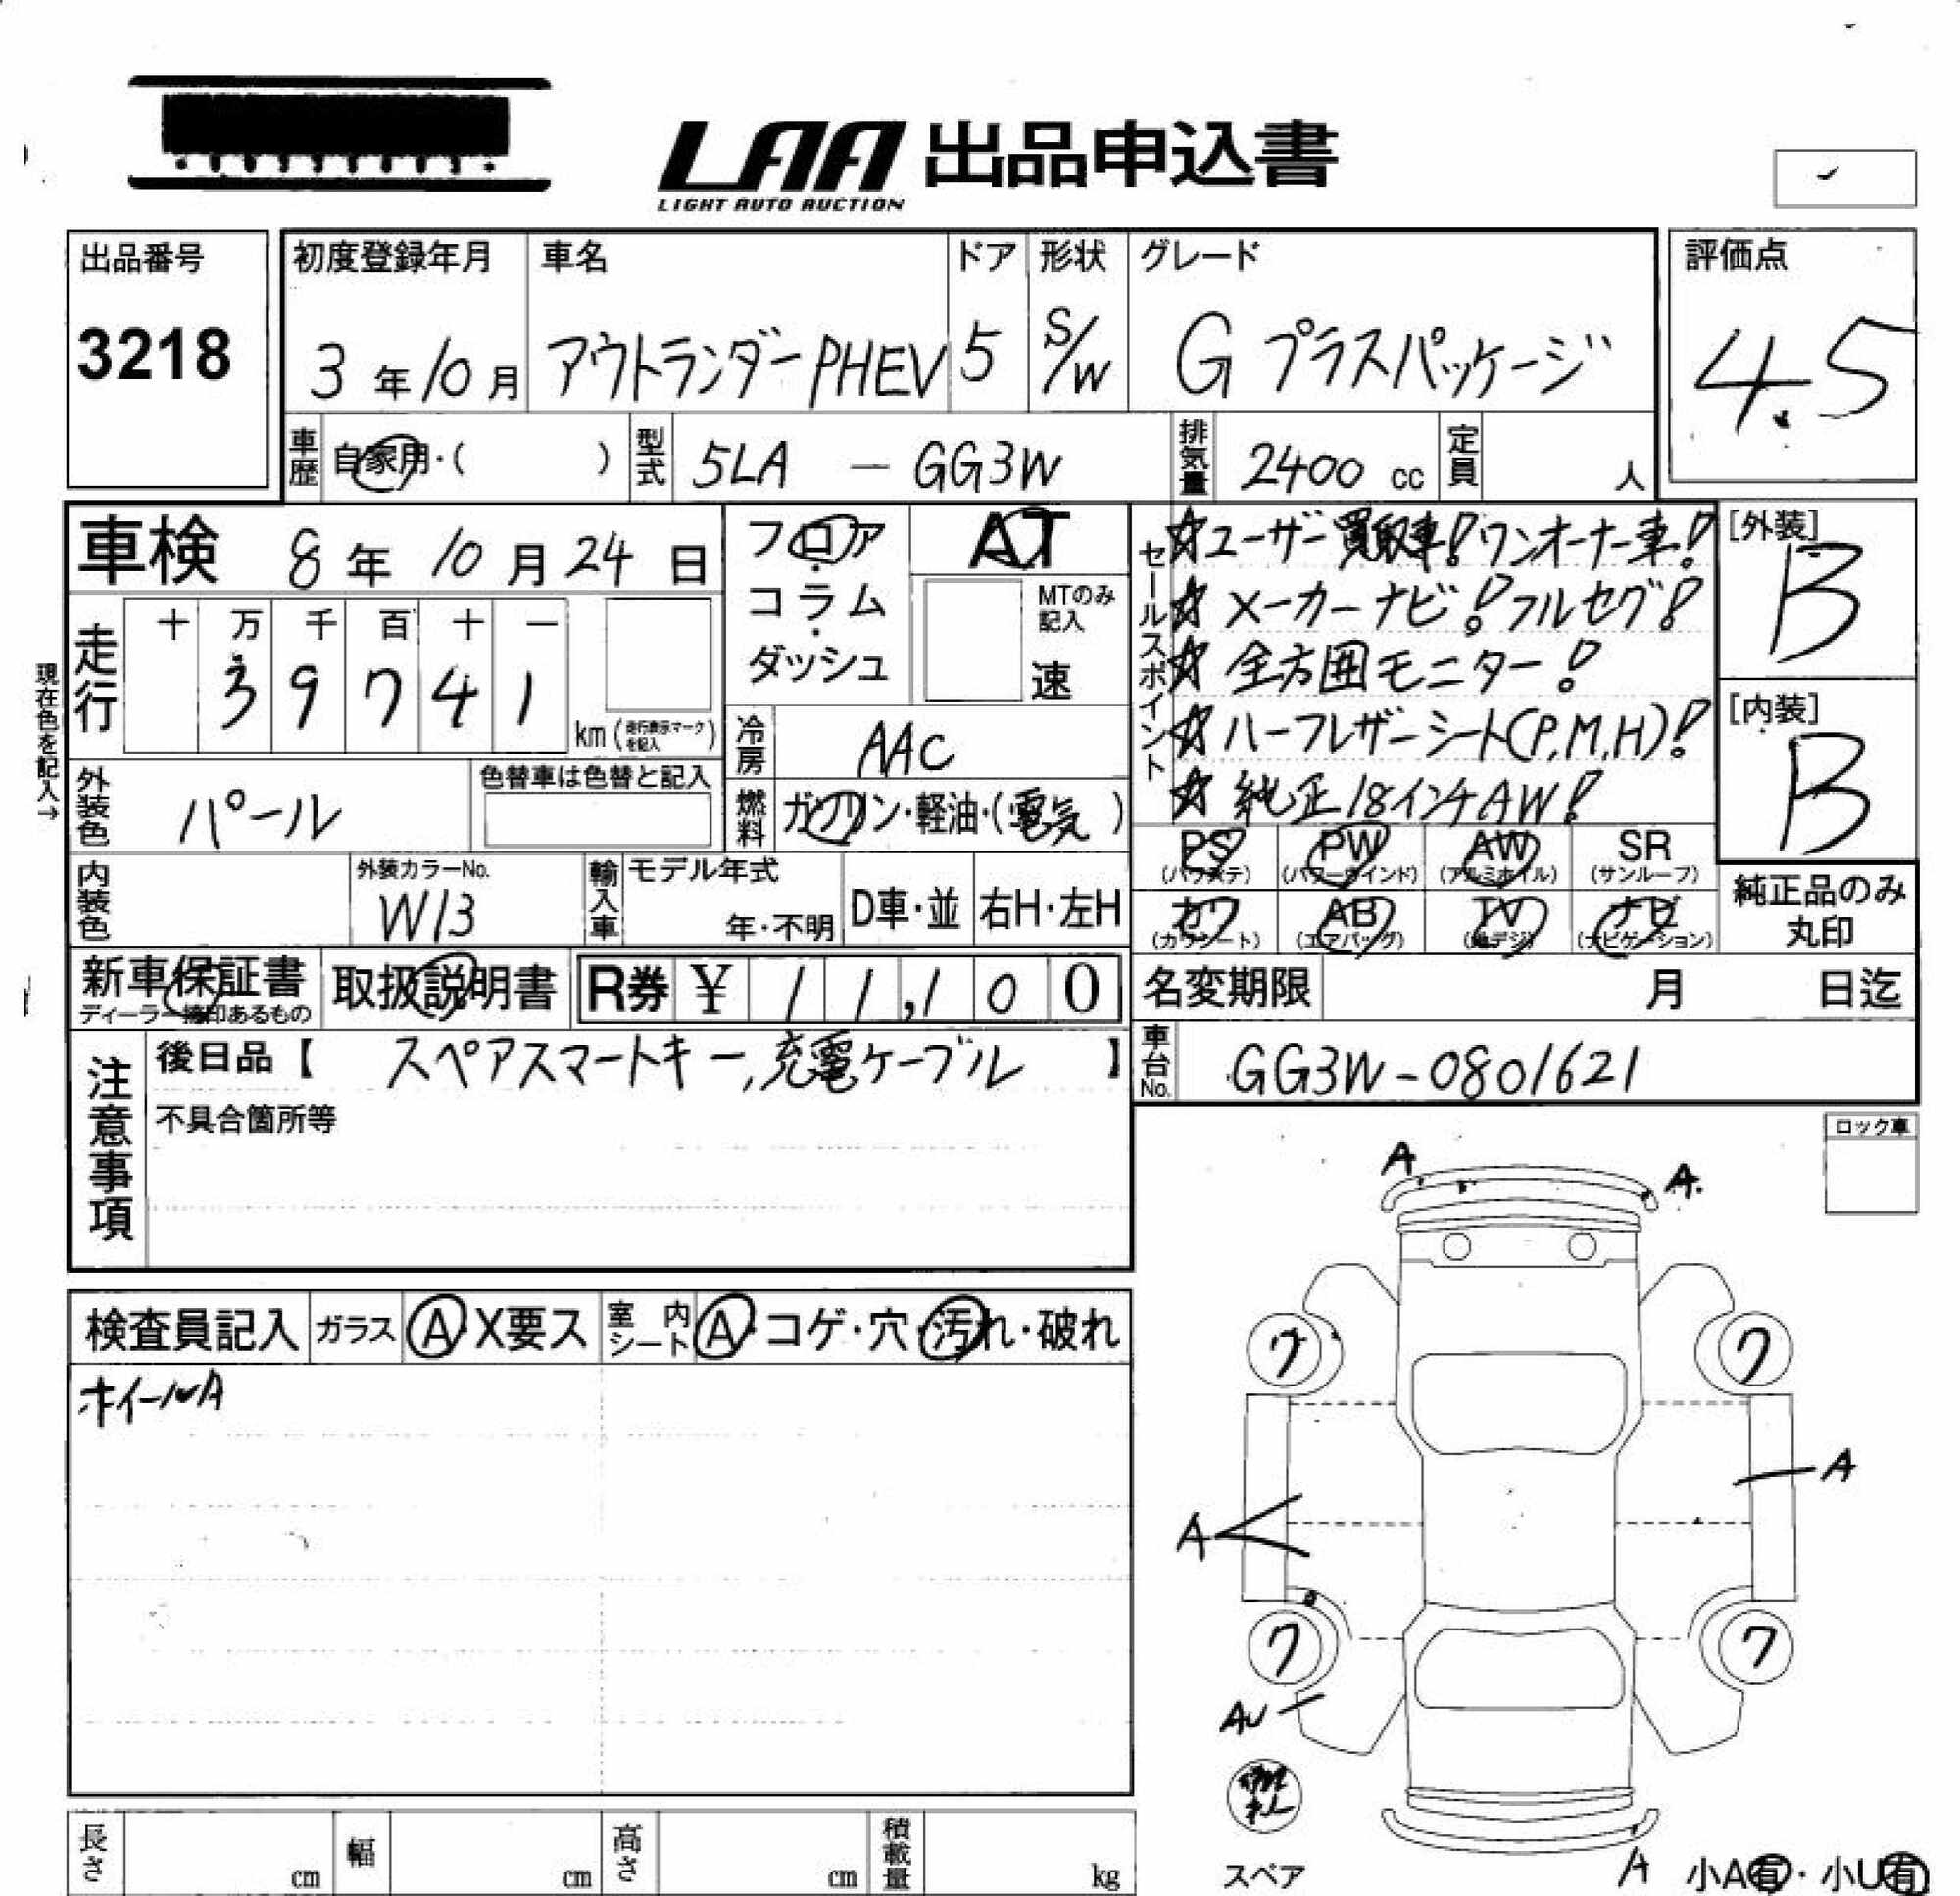 LAA 出品申込書
LIGHT AUTO AUCTION
出品番号
3218
初度登録年月
3 年 10 月
車名
アウトランダーPHEV
ドア
5
形状
S/W
グレード
G プラスパッケージ
評価点
4.5
車歴 自家用・( )
型式 5LA - GG3W
排気量 2400 cc
定員 人
車検 8 年 10 月 24 日
フロア・コラム・ダッシュ
AT
MTのみ記入
速
走行
十 万 千 百 十 一
3 9 7 4 1
km (走行表示マークを記入)
現在色を記入→
冷房 AAC
燃料 ガソリン・軽油・(電気)
外装色 パール
色替車は色替と記入
内装色
外装カラーNo.
W13
輸入車
モデル年式
年・不明
D車・並
右H・左H
セールスポイント
☆ユーザー買取車!ワンオーナー車!
☆メーカーナビ!フルセグ!
☆全方囲モニター!
☆ハーフレザーシート(P,M,H)!
☆純正18インチAW!
[外装]
B
[内装]
B
PS (パワステ) PW (パワーウインド) AW (アルミホイル) SR (サンルーフ)
カワ (カワシート) AB (エアバッグ) TV (地デジ) ナビ (ナビゲーション)
純正品のみ丸印
新車保証書
ディーラー捺印あるもの
取扱説明書
R券 ¥ 11,100
名変期限 月 日迄
車台No. GG3W-0801621
注意事項
後日品【 スペアスマートキー,充電ケーブル 】
不具合箇所等
ロック車
検査員記入 ガラス A・X要ス 室内シート A・コゲ・穴・汚れ・破れ
ホイールA
A
A
ワ
ワ
A
A
ワ
ワ
AU
スペア
A
小A有・小U有
長さ cm 幅 cm 高さ cm 積載量 kg